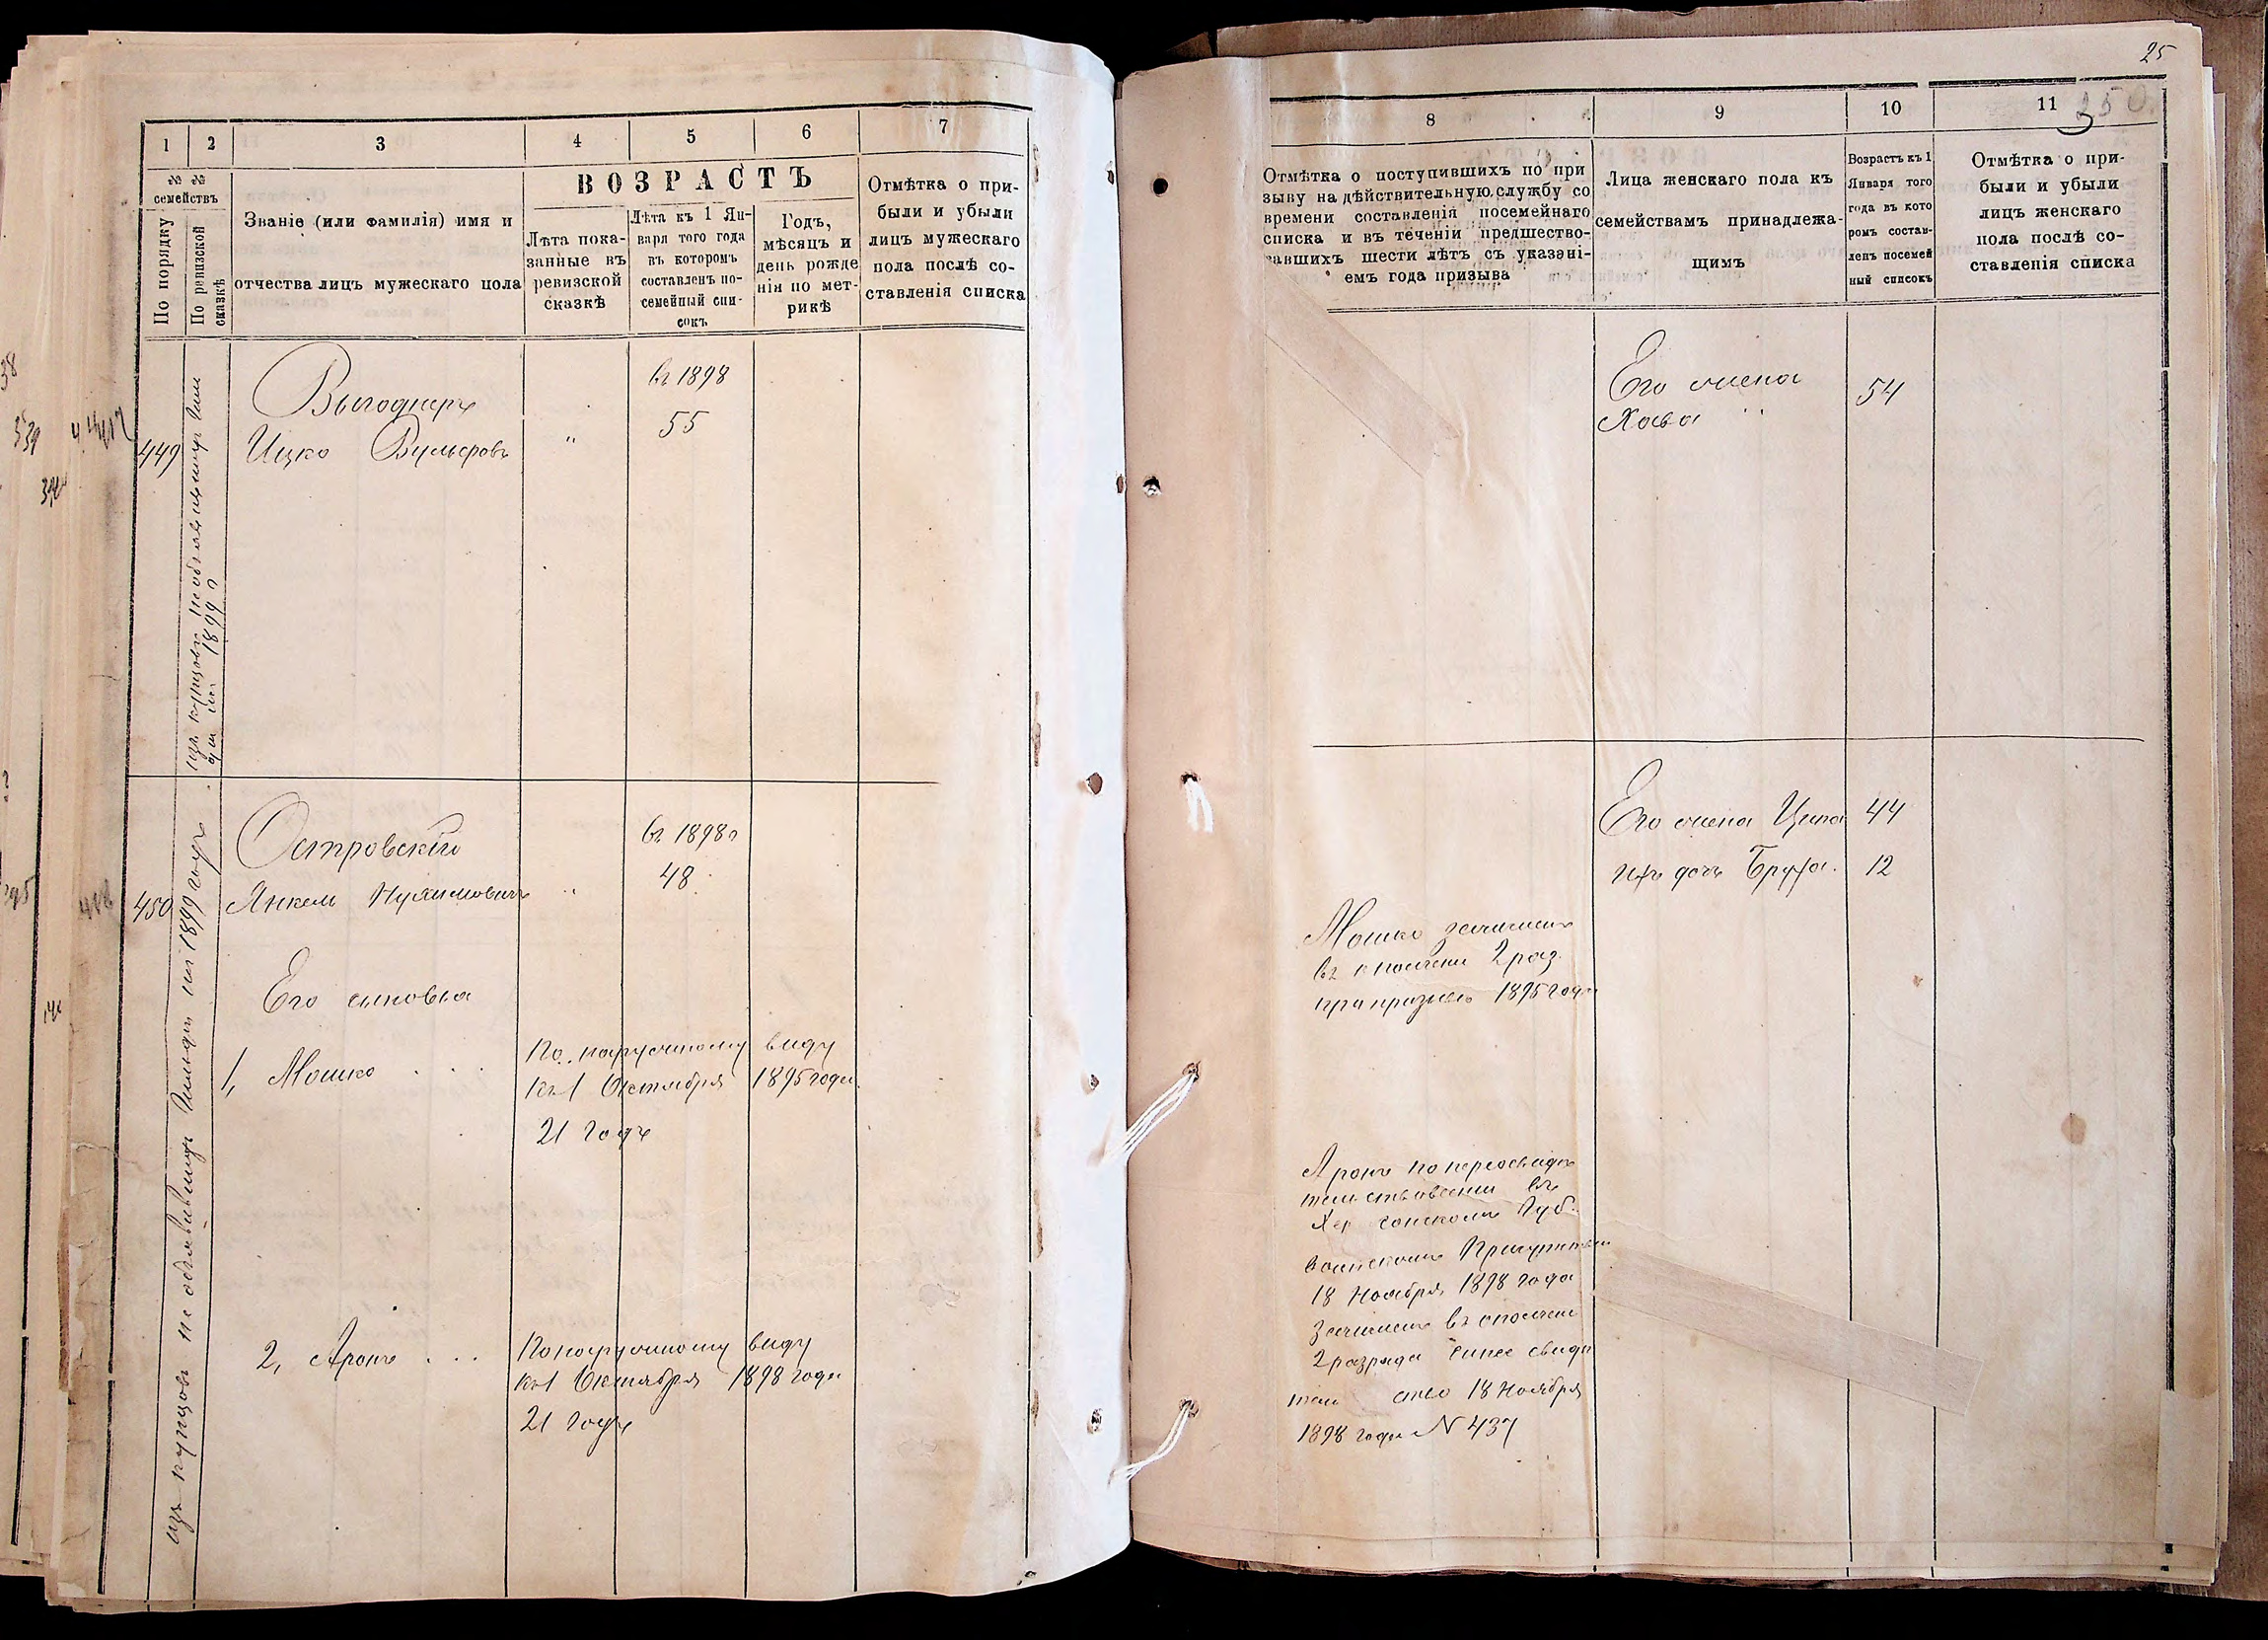 25
250.
1 2 3 4 5 6 7
№ № семействъ
По порядку
По ревизской сказкѣ
Званіе (или фамилія) имя и
отчества лицъ мужескаго пола
ВОЗРАСТЪ
Лѣта пока-
занные въ
ревизской
сказкѣ
Лѣта къ 1 Ян-
варя того года
въ которомъ
составленъ по-
семейный спи-
сокъ
Годъ,
мѣсяцъ и
день рожде
нія по мет-
рикѣ
Отмѣтка о при-
были и убыли
лицъ мужескаго
пола послѣ со-
ставленія списка
449
изъ купцовъ не объявившихъ
на 1899 г
Выгоднеръ
Ицко Вульфовъ
"
въ 1898
55
450
изъ купцовъ не объявившихъ на 1899 годъ
Островскій
Янкель Нухимовичъ
въ 1898 г
48
Его сыновья
1, Мошко . . .
По наружному виду
къ 1 Октября 1895 года
21 годъ
2, Аронъ . . .
По наружному виду
къ 1 Октября 1898 года
21 годъ
8 9 10 11
Отмѣтка о поступившихъ по при
зыву на дѣйствительную службу со
времени составленія посемейнаго
списка и въ теченіи предшество-
вавшихъ шести лѣтъ съ указані-
емъ года призыва
Лица женскаго пола къ
семействамъ принадлежа-
щимъ
Возрастъ къ 1
Января того
года въ кото
ромъ состав-
ленъ посемей
ный списокъ
Отмѣтка о при-
были и убыли
лицъ женскаго
пола послѣ со-
ставленія списка
Его жена
Хава
54
Его жена Ципа 44
ихъ дочь 12
Мошко зачисленъ
въ ополчени 2 раз.
при призывѣ 1895 года
Аронъ по переосвидѣ
тельствовании въ
Херсонскомъ Губ.
воинскомъ Присутствии
18 Ноября 1898 года
зачисленъ въ ополчени
2 разряда свидѣ
тельство 18 Ноября
1898 года N 437